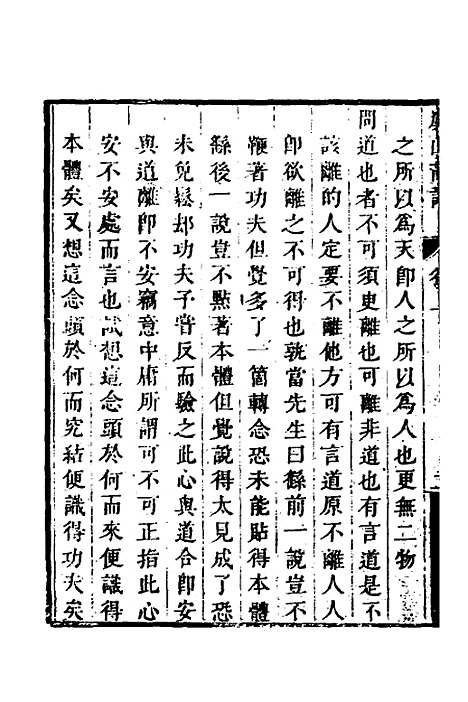 之所以爲天卽人之所以爲人也更無二物
問道也者不可須臾離也可離非道也有言道是不
該離的人定要不離他方可有言道原不離人人
卽欲離之不可得也孰當先生曰繇前一說豈不
鞭著功夫但覺多了一箇轉念恐未能貼得本體
繇後一說豈不點著本體但覺說得太見成了恐
未免鬆却功夫子嘗反而驗之此心與道合卽安
與道離卽不安竊意中庸所謂可不可正指此心
安不安處而言也試想這念頭於何而來便識得
本體矣又想這念頭於何而究結便識得功夫矣